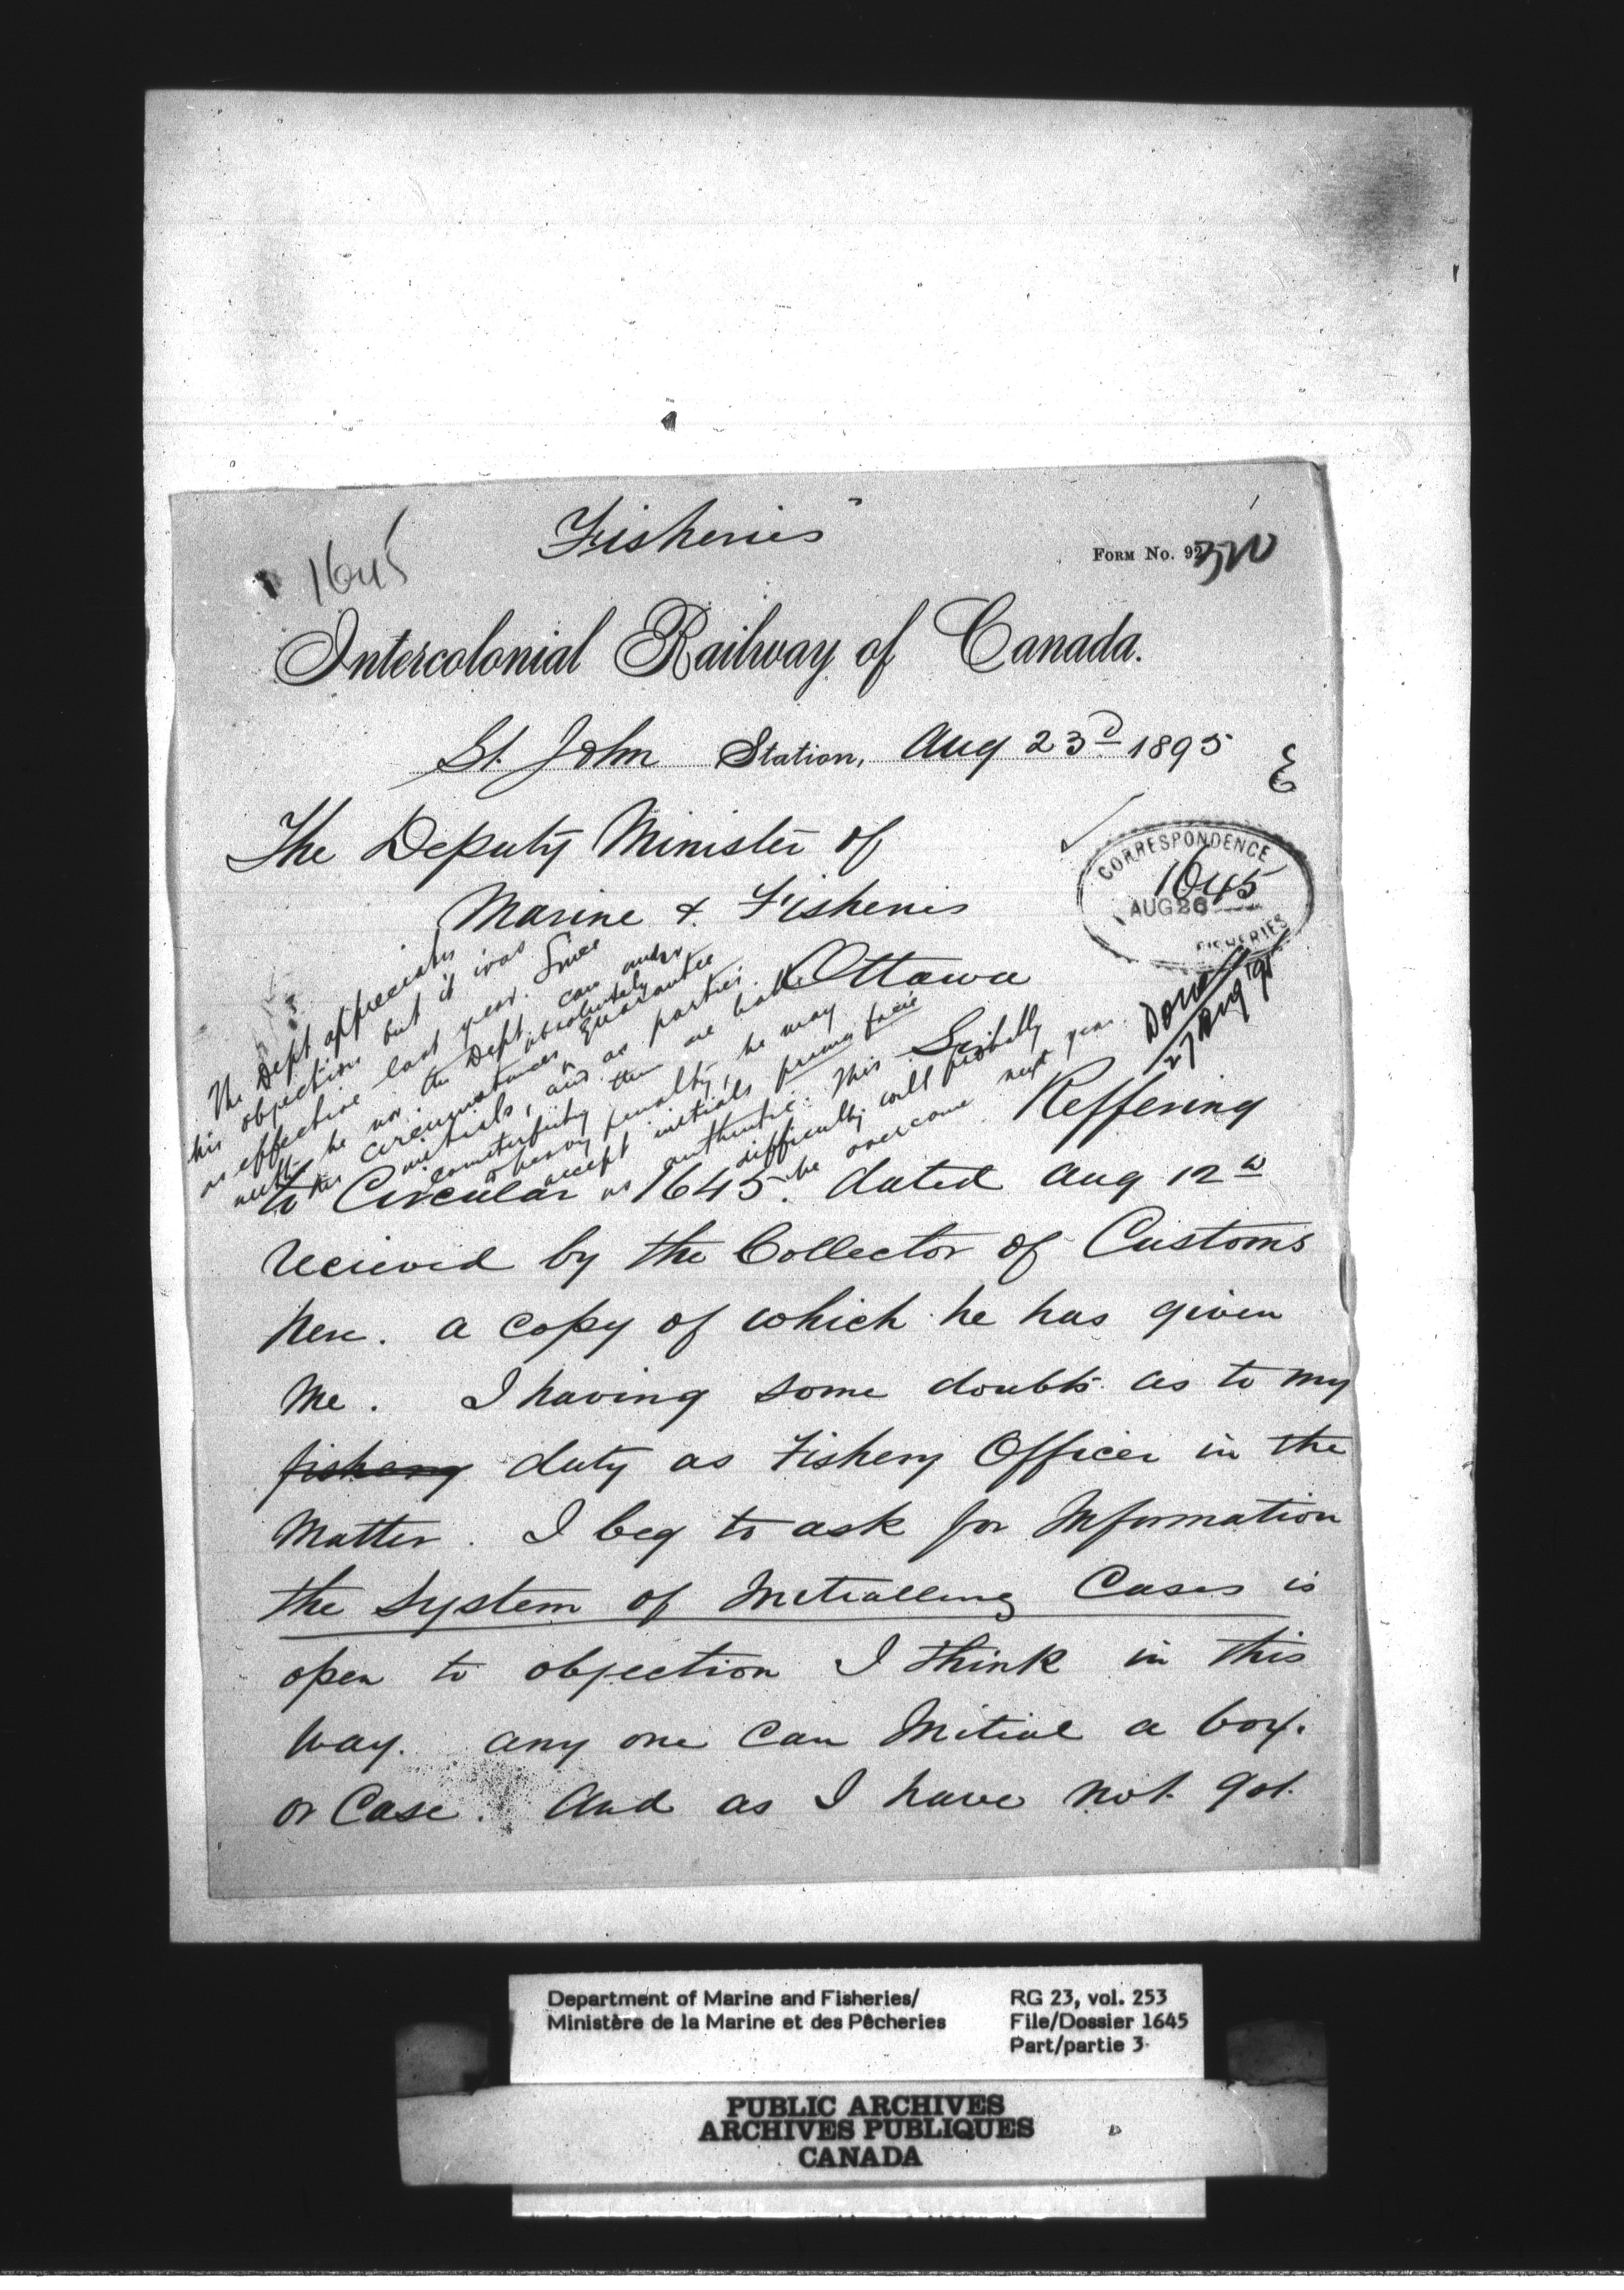 Fisheries"
1645
Form No. 92
Intercolonial Railway of Canada.
St. John Station, Aug 23d 1895
The Deputy Minister of
Marine & Fisheries
Ottawa
CORRESPONDENCE
1645
AUG 26
FISHERIES
Done
27 Aug '95
The Dept appreciates
his objection but it was
as effective last year. Since
neither he nor the Dept. can under
the circumstances absolutely guarantee
initials, and as parties
counterfeiting them are liable
to heavy penalty, he may
accept initials prima facie
as authentic. This
difficulty will probably
be overcome next year.
Sir
Reffering
to Circular 1645. dated Aug 12th
recieved by the Collector of Customs
here. a copy of which he has given
me. I having some doubts as to my
fishery duty as Fishery Officer in the
Matter. I beg to ask for Information
the System of Initialling Cases is
open to objection I think in this
way. any one Can Initial a box.
or Case. And as I have not got
Department of Marine and Fisheries/
Ministère de la Marine et des Pêcheries
RG 23, vol. 253
File/Dossier 1645
Part/partie 3
PUBLIC ARCHIVES
ARCHIVES PUBLIQUES
CANADA